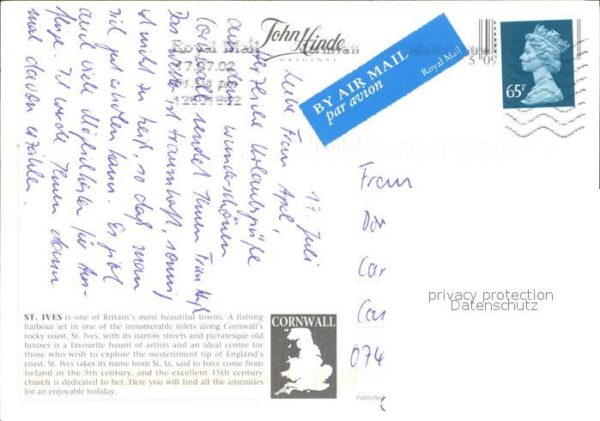 John Hinde
ORIGINAL
Royal Mail
17.07.02
BY AIR MAIL
par avion
Royal Mail
65P
17. Juli
Liebe Frau April,
herzliche Urlaubsgrüße
aus dem wunderschönen
Cornwall sendet Ihnen Frau
Das Wetter ist traumhaft, sonnig
ist nicht zu heiß, so daß man
viel gut erholen kann. Es gibt
auch viele Möglichkeiten für Aus-
flüge. Ich werde Ihnen dann
mal davon erzählen.
Frau
Cas
074
privacy protection
Datenschutz
ST. IVES is one of Britain's most beautiful towns. A fishing
harbour set in one of the innumerable inlets along Cornwall's
rocky coast. St. Ives, with its narrow streets and picturesque old
houses is a favourite haunt of artists and an ideal centre for
those who wish to explore the westernmost tip of England's
coast. St. Ives takes its name from St. Ia, said to have come from
Ireland in the 5th century, and the excellent 15th century
church is dedicated to her. Here you will find all the amenities
for an enjoyable holiday.
CORNWALL
Published